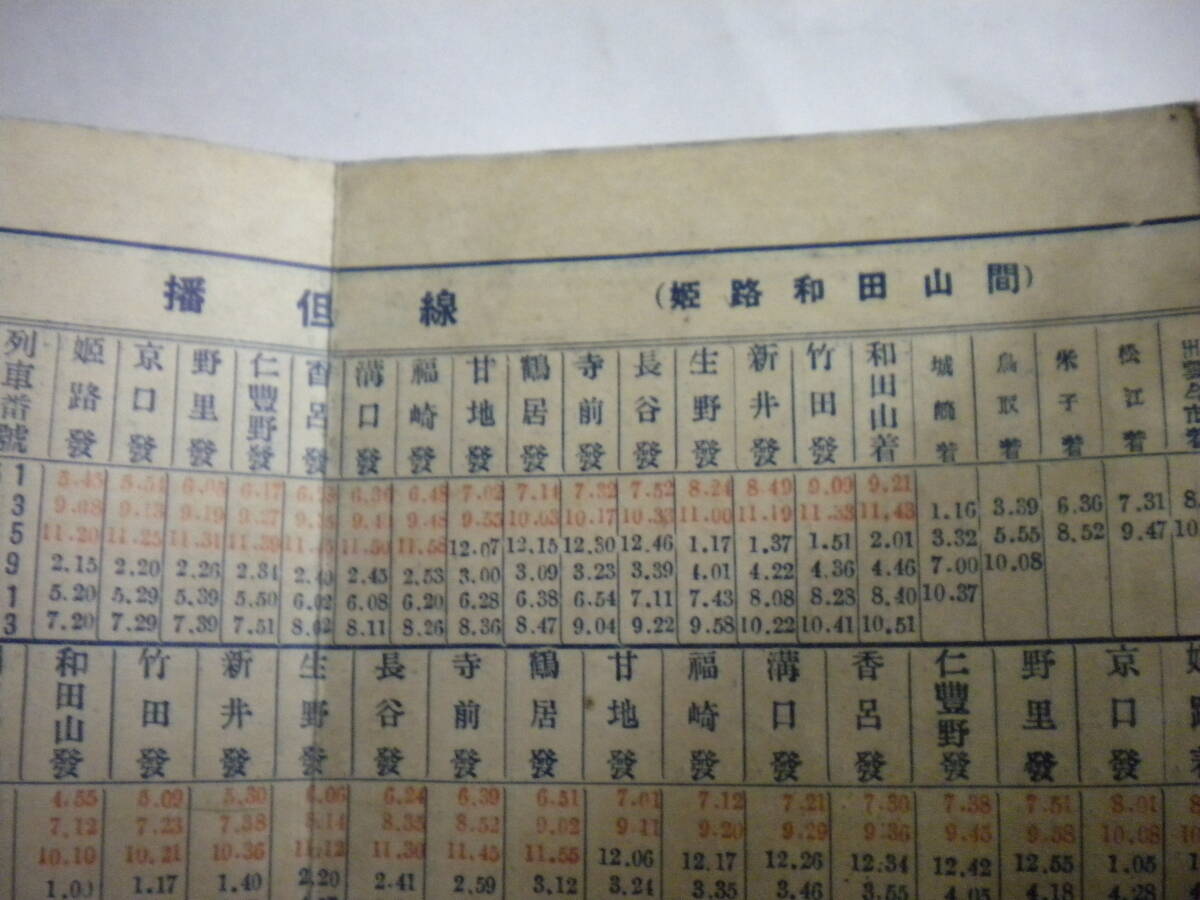 播但線 (姫路和田山間)
列車番號 姬路發 京口發 野里發 仁豐野發 香呂發 溝口發 福崎發 甘地發 鶴居發 寺前發 長谷發 生野發 新井發 竹田發 和田山着 城崎着 鳥取着 米子着 松江着
1 5.45 6.05 6.17 6.36 6.48 7.02 7.14 7.32 7.52 8.24 8.49 9.09 9.21
3 9.08 9.13 9.19 9.27 9.48 9.55 10.03 10.17 10.33 11.00 11.19 11.33 11.43 1.16 3.39 6.36 7.31
5 11.20 11.25 11.31 11.39 11.50 11.58 12.07 12.15 12.30 12.46 1.17 1.37 1.51 2.01 3.32 5.55 8.52 9.47
9 2.15 2.20 2.26 2.34 2.40 2.45 2.53 3.00 3.09 3.23 3.39 4.01 4.22 4.36 4.46 7.00 10.08
1 5.20 5.29 5.39 5.50 6.02 6.08 6.20 6.28 6.38 6.54 7.11 7.43 8.08 8.28 8.40 10.37
3 7.20 7.29 7.39 7.51 8.02 8.11 8.26 8.36 8.47 9.04 9.22 9.58 10.22 10.41 10.51
和田山發 竹田發 新井發 生野發 長谷發 寺前發 鶴居發 甘地發 福崎發 溝口發 香呂發 仁豐野發 野里發 京口發
4.55 5.09 5.30 6.06 6.24 6.39 6.51 7.01 7.12 7.21 7.30 7.38 7.51 8.01
7.12 7.23 7.38 8.14 8.35 8.52 9.02 9.11 9.20 9.29 9.36 9.45 9.58 10.08
10.10 10.21 10.36 11.12 11.30 11.45 11.55 12.06 12.17 12.26 12.34 12.42 12.55 1.05
1.00 1.17 1.40 2.20 2.41 2.59 3.12 3.24 3.35 3.46 3.55 4.05 4.18 4.28